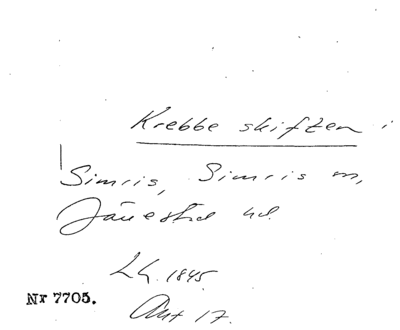 Krebbe skiften i
Simris, Simris m,
Järrestad hd.
LG. 1845.
Akt 17.
Nr 7705.